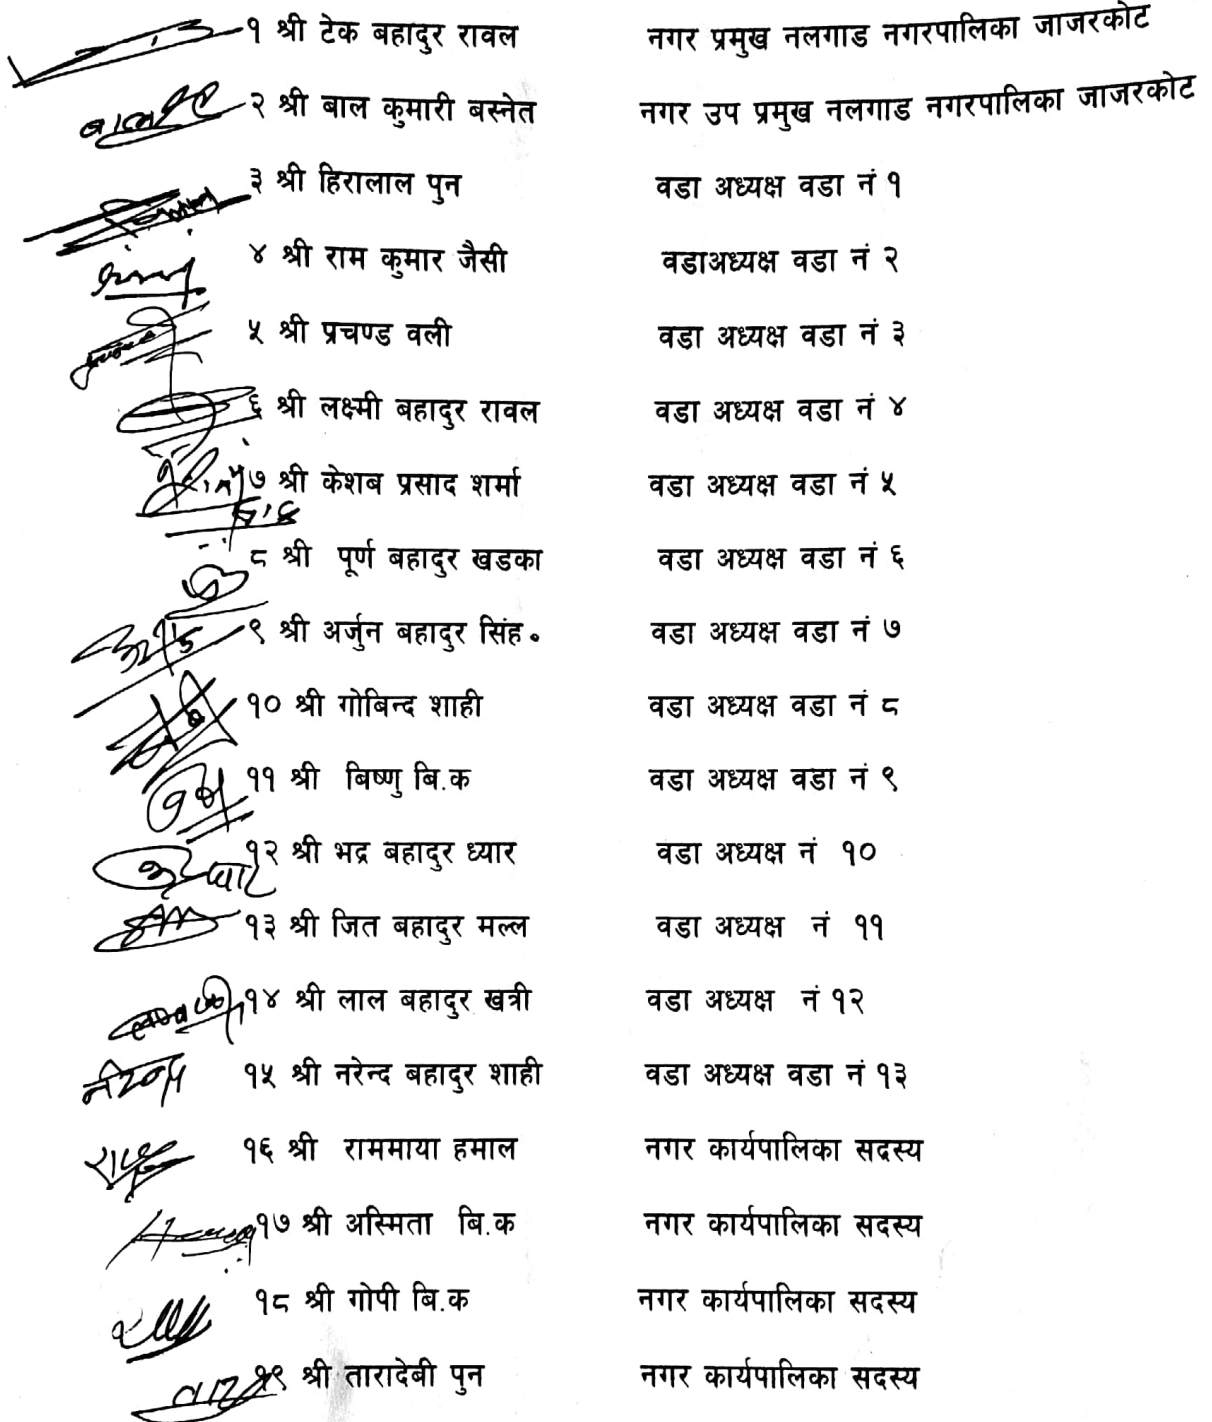 १ श्री टेक बहादुर रावल नगर प्रमुख नलगाड नगरपालिका जाजरकोट
२ श्री बाल कुमारी बस्नेत नगर उप प्रमुख नलगाड नगरपालिका जाजरकोट
३ श्री हिरालाल पुन वडा अध्यक्ष वडा नं १
४ श्री राम कुमार जैसी वडाअध्यक्ष वडा नं २
५ श्री प्रचण्ड वली वडा अध्यक्ष वडा नं ३
६ श्री लक्ष्मी बहादुर रावल वडा अध्यक्ष वडा नं ४
७ श्री केशब प्रसाद शर्मा वडा अध्यक्ष वडा नं ५
८ श्री पूर्ण बहादुर खडका वडा अध्यक्ष वडा नं ६
९ श्री अर्जुन बहादुर सिंह॰ वडा अध्यक्ष वडा नं ७
१० श्री गोबिन्द शाही वडा अध्यक्ष वडा नं ८
११ श्री बिष्णु बि.क वडा अध्यक्ष वडा नं ९
१२ श्री भद्र बहादुर ध्यार वडा अध्यक्ष नं १०
१३ श्री जित बहादुर मल्ल वडा अध्यक्ष नं ११
१४ श्री लाल बहादुर खत्री वडा अध्यक्ष नं १२
१५ श्री नरेन्द बहादुर शाही वडा अध्यक्ष वडा नं १३
१६ श्री राममाया हमाल नगर कार्यपालिका सदस्य
१७ श्री अस्मिता बि.क नगर कार्यपालिका सदस्य
१८ श्री गोपी बि.क नगर कार्यपालिका सदस्य
१९ श्री तारादेबी पुन नगर कार्यपालिका सदस्य